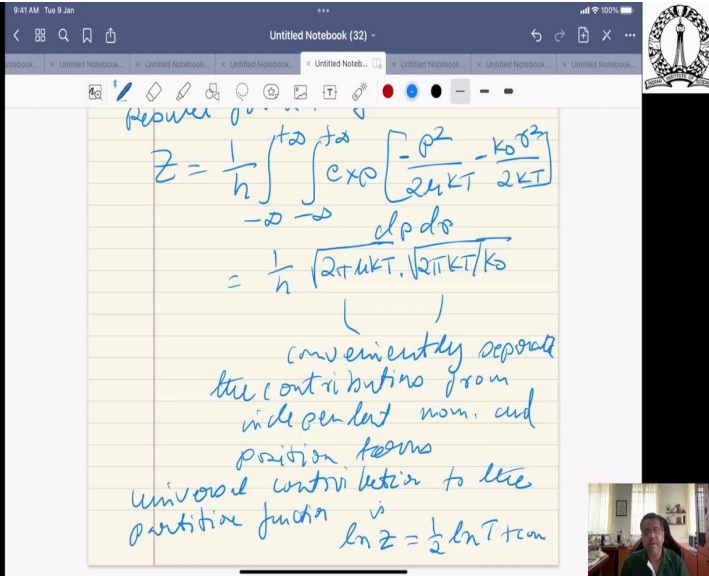 9:41 AM Tue 9 Jan
100%
Untitled Notebook (32)
Untitled Notebook... Untitled Notebook... Untitled Notebook... Untitled Noteb... Untitled Notebook... Untitled Notebook... Untitled Notebook...
Z = 1/h ∫_{-∞}^{+∞} ∫_{-∞}^{+∞} exp [ -p²/2μKT - K₀r²/2KT ]
dp dr
= 1/h √2πμKT . √2πKT/K₀
conveniently separate
the contributions from
independent mom. and
position terms
universal contribution to the
partition function is
ln Z = 1/2 ln T + con